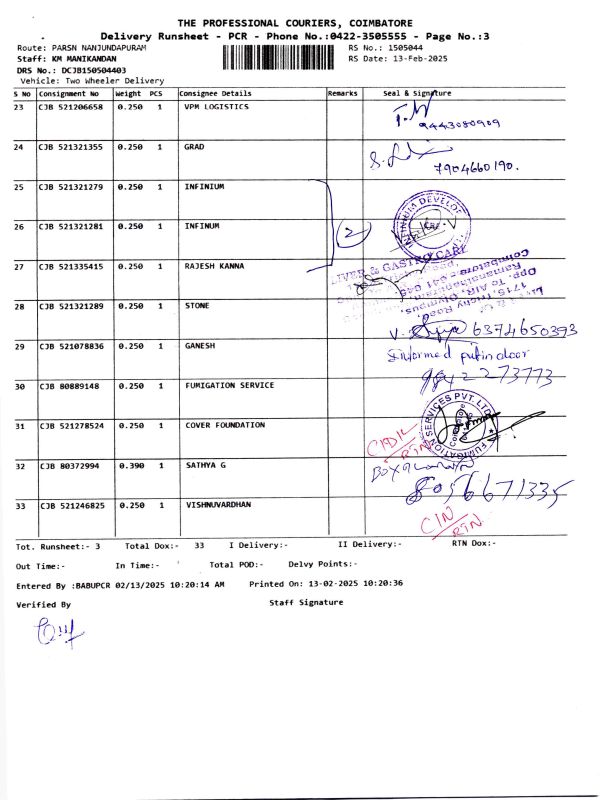 THE PROFESSIONAL COURIERS, COIMBATORE
Delivery Runsheet - PCR - Phone No.:0422-3505555 - Page No.:3
Route: PARSN NANJUNDAPURAM RS No.: 1505044
Staff: KM MANIKANDAN RS Date: 13-Feb-2025
DRS No.: DCJB150504403
Vehicle: Two Wheeler Delivery
S No Consignment No Weight PCS Consignee Details Remarks Seal & Signature
23 CJB 521206658 0.250 1 VPM LOGISTICS
9443080909
24 CJB 521321355 0.250 1 GRAD
7904660190.
25 CJB 521321279 0.250 1 INFINIUM
2
INFINIUM DEVELOP
26 CJB 521321281 0.250 1 INFINUM
27 CJB 521335415 0.250 1 RAJESH KANNA
LIVER & GASTRO CARE
1715, Trichy Road,
Opp. To AIR, Olympus,
Ramanathapuram,
Coimbatore-641 045
28 CJB 521321289 0.250 1 STONE
6374650393
29 CJB 521078836 0.250 1 GANESH
Informed putin door
9842273773
30 CJB 80889148 0.250 1 FUMIGATION SERVICE
FUMIGATION SERVICES PVT.LTD
31 CJB 521278524 0.250 1 COVER FOUNDATION
RTN
32 CJB 80372994 0.390 1 SATHYA G
8056671335
33 CJB 521246825 0.250 1 VISHNUVARDHAN
CIN
RTN
Tot. Runsheet:- 3 Total Dox:- 33 I Delivery:- II Delivery:- RTN Dox:-
Out Time:- In Time:- Total POD:- Delvy Points:-
Entered By :BABUPCR 02/13/2025 10:20:14 AM Printed On: 13-02-2025 10:20:36
Verified By Staff Signature